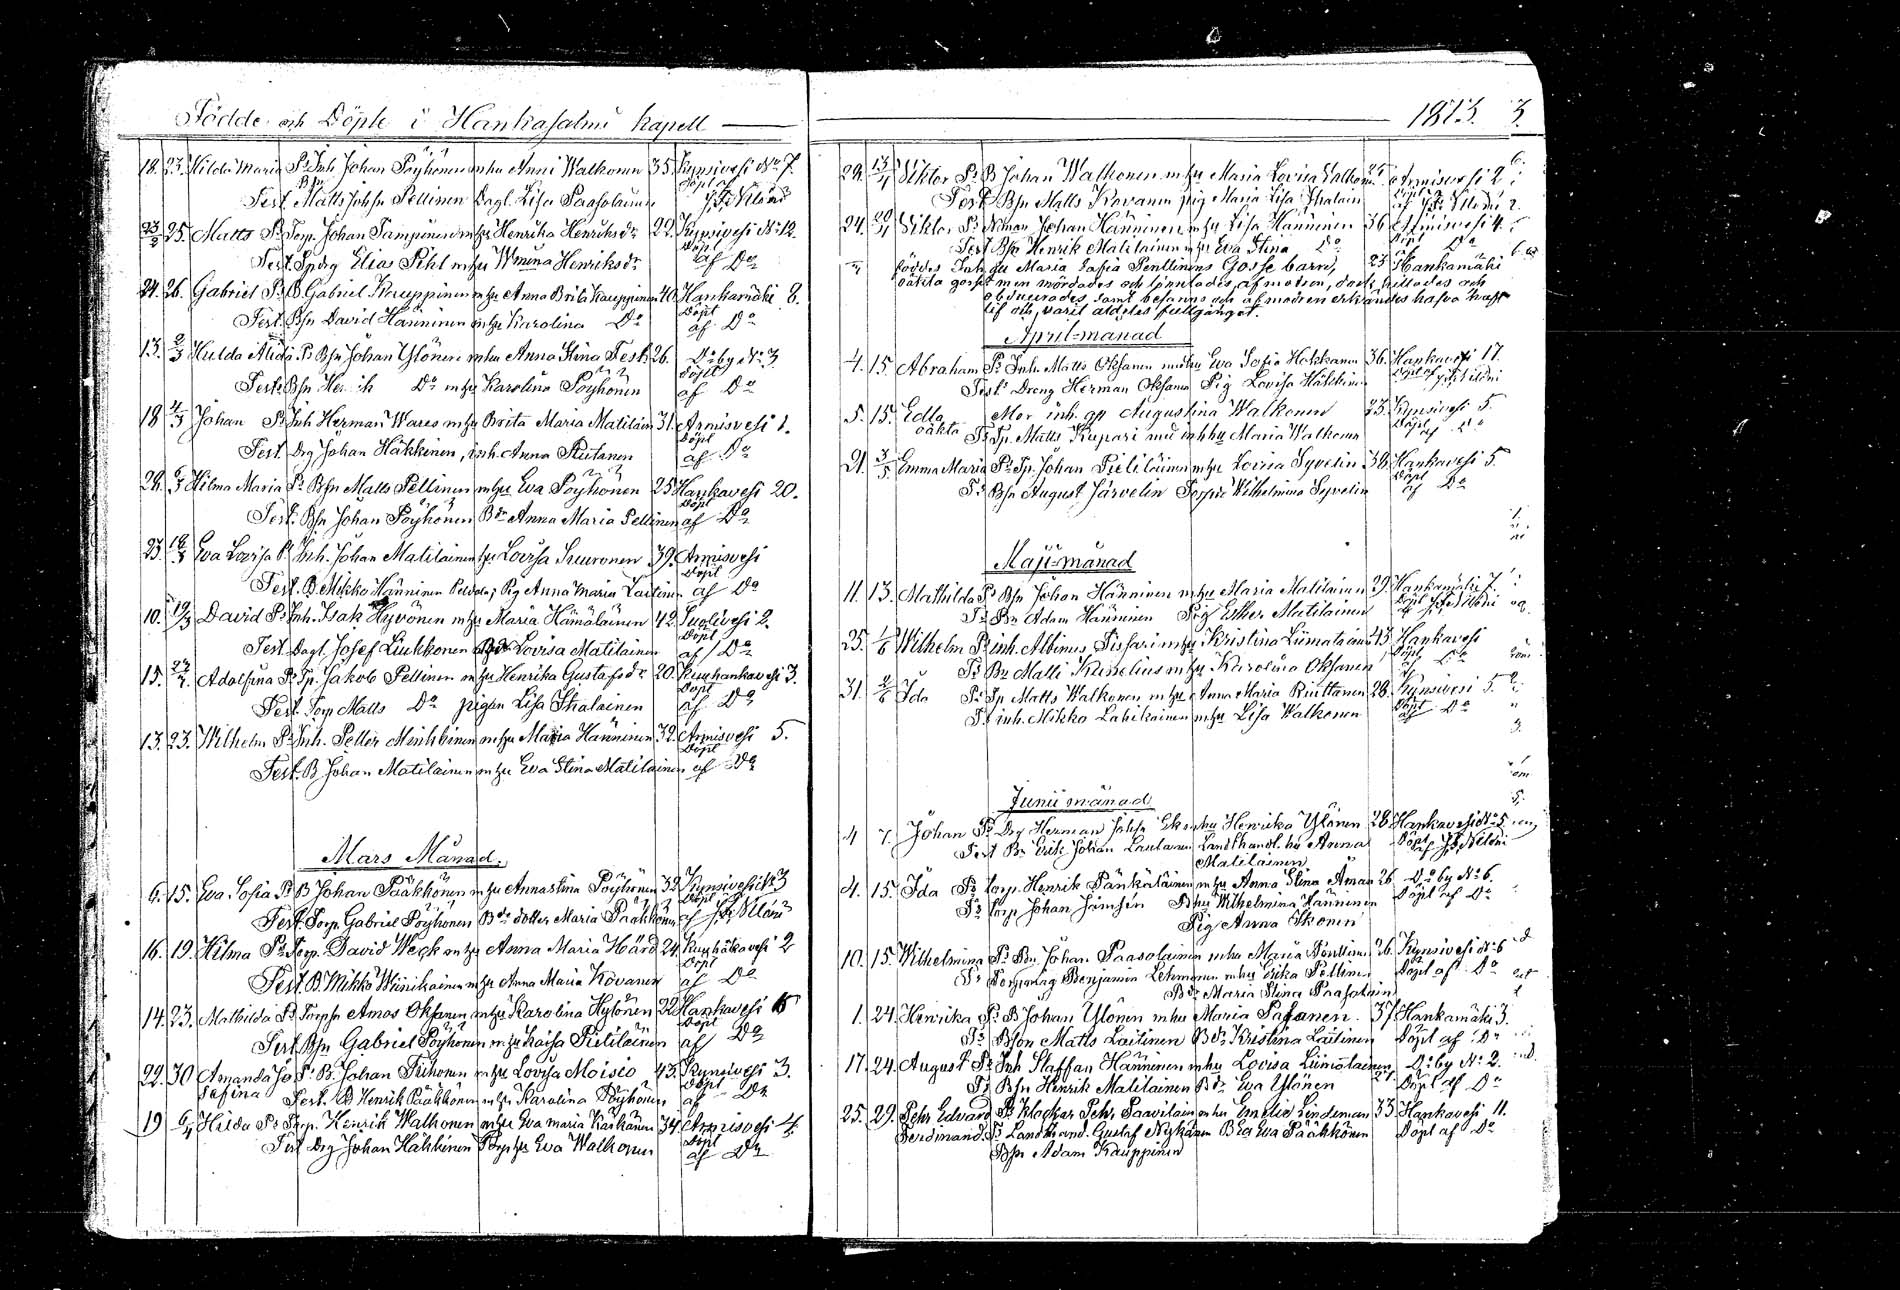 Födde och Döpte i Hankasalmi kapell
18. 23. Hilda Maria Pr Inh Johan Pöyhönen mhu Anni Walkonen 35. Kynsivesi No 7.
Test. Bsn Matts Johsn Pellinen Dagl. Lisa Paasolainen Döpt af J.F. Niloni
23/2 25. Matts Pr Torp. Johan Tampinen m hu Henrika Henriksdr 22. Kynsivesi No 12.
Test. Tpdrg Elias Pihl m hu Wmina Henriksdr Döpt af Do
24. 26. Gabriel Pr B Gabriel Kauppinen m hu Anna Brita Kauppinen 40. Hankamäki 8.
Test. Bsn David Hänninen m hu Karolina Do Döpt af Do
13. 2/3 Hulda Alida Pr Bsn Johan Ylönen m hu Anna Stina Tesk 26. Do by No 3
Test. Bsn Henrik Do m hu Karolina Pöyhönen Döpt af Do
18 4/3 Johan Pr Inh Herman Wares m hu Brita Maria Matilain 31. Armisvesi 1.
Test. Drg Johan Häkkinen, inh. Anna Rutanen Döpt af Do
28. 6/3 Hilma Maria Pr Bsn Matts Pellinen m hu Eva Pöyhönen 25 Hankavesi 20.
Test. Bsn Johan Pöyhönen Bdr Anna Maria Pellinen Döpt af Do
23 18/3 Eva Lovisa Pr Inh. Johan Matilainen hu Lovisa Suuronen 39. Armisvesi
Test. B. Mikko Hänninen Pig Anna Maria Laitinen Döpt af Do
10. 19/3 David Pr Inh. Isak Hyvönen m hu Maria Hämäläinen 42. Suolivesi 2.
Test. Dagl. Josef Liukkonen Bdr Lovisa Matilainen Döpt af Do
15. 23/3 Adolfina Pr Tp. Jakob Pellinen m hu Henrika Gustafsdr 20. Kuuhankavesi 3.
Test. Torp Matts Do pigan Lisa Ihalainen Döpt af Do
13. 23. Wilhelm Pr Inh. Petter Minkkinen m hu Maria Hänninen 32. Armisvesi 5.
Test. B Johan Matilainen m hu Eva Stina Matilainen Döpt af Do
Mars Månad.
6. 15. Eva Sofia Pr B Johan Pääkkönen m hu Annastina Pöyhönen 32 Kynsivesi No 3
Test. Torp Gabriel Pöyhönen Bde dotter Maria Pääkkönen Döpt af J.F. Niloni
16. 19. Hilma Pr Torp. David Weck m hu Anna Maria Hård 24. Kuuhakavesi 2
Test. B. Mikko Wiinikainen m hu Anna Maria Kovanen Döpt af Do
14. 23. Mathilda Pr Torpsn Amos Oksanen m hu Karolina Hytönen 22. Hankavesi 15
Test. Bsn Gabriel Pöyhönen m hu Kaisa Pieliläinen Döpt af Do
22. 30 Amanda Jo Pr Bs Johan Tiihonen m hu Lovisa Moisio 43. Kynsivesi 3.
sefina Test. B Henrik Pääkkönen m hu Karolina Pöyhönen Döpt Do
19 6/4 Hilda Pr Torp. Henrik Walkonen m hu Eva Maria Kärkänen 34 Armisvesi 4.
Test Drg Johan Häkkinen Torp hu Eva Walkonen Döpt af Do
1873. 3.
24. 13/4 Viktor Pr B Johan Walkonen m hu Maria Lovisa Walkon Armisvesi 2
Test Bsn Matts Kovanen pig Maria Lisa Ihalain
24. 20/4 Viktor Pr Nman Johan Hänninen m hu Lisa Hänninen 36 Armisvesi 4.
Test Bsn Henrik Matilainen m hu Eva Stina Do Döpt Do
föddes Inh gu Maria Sofia Penttinens Gosse barn, 23 Hankamäki
oäkta gosse men mördades och lönnlades af modren, dock hittades och
obduserades, samt befanns och af modren erkändes hafva haft
lif och varit aldeles fullgånget.
April-månad
4. 15. Abraham Pr Inh. Matts Oksanen m hu Eva Sofia Hokkanen 36. Hankavesi 17.
Test. Dreng Herman Oksanen Pig Lovisa Häkkinen Döpt af J.F. Niloni
5. 15. Edla Mor inh. qp Augustina Walkonen 23. Kynsivesi 5.
oäkta Tr Tp. Matts Kupari m hu Maria Walkonen Döpt af Do
21. 3/5 Emma Maria Pr Tp. Johan Pieliläinen m hu Lovisa Syvelin 38. Hankavesi 5.
Tr Bsn August Järvelin Wilhelmina Syvelin Döpt af Do
Maji-månad
11. 13. Mathilda Pr Bsn Johan Hänninen m hu Maria Matilainen 29. Hankamäki 7.
Tr Bn Adam Hänninen Pig Esther Matilainen Döpt af J.F. Niloni
25. 1/6 Wilhelm Pr inh. Albinus Sissari m hu Kristina Liimatain 43 Hankavesi
Tr Bn Matti Kumelius m hu Karolina Oksanen Döpt af Do
31. 2/6 Ida Pr Tp Matts Walkonen m hu Anna Maria Ruuttanen 28. Kynsivesi 5.
Tr inh. Mikko Lahikainen m hu Lisa Walkonen Döpt af Do
Junii månad
4 7. Johan Pr Drg Herman Johsn Ek m hu Henrika Ylönen 28. Hankavesi No 5
Test Bn Erik Johan Lautanen Landhandl. hu Anna Döpt af J.F. Niloni
Matilainen
4. 15. Ida Pr torp. Henrik Pänkäläinen m hu Anna Stina Åman 26 Do by No 6.
Tr torp Johan Jämsén B hu Wilhelmina Hänninen Döpt af Do
Pig Anna Ikonen
10. 15. Wilhelmina Pr Bsn Johan Paasolainen m hu Maria Penttinen 26. Kynsivesi No 6
Tr Torpmåg Benjamin Lehmonen m hu Erika Pellinen Döpt af Do
Bdr Maria Stina Paasolain
1. 24. Henrika Pr B Johan Ylönen m hu Maria Papanen. 37 Hankamäki 3.
Tr Bson Matts Laitinen Bdr Kristina Laitinen Döpt af Do
17. 24. August Pr Inh Staffan Hänninen m hu Lovisa Liimatainen Do by No 2.
Tr Bsn Henrik Matilainen Bdr Eva Ylönen 27. Döpt af Do
25. 29. Pehr Edvard Pr Klockar Pehr Paavilain m hu Emelie Lindeman 33 Hankavesi 11.
Ferdinand. Tr Landthand. Gustaf Nykänen B Eva Pääkkönen Döpt af Do
Bsn Adam Kauppinen